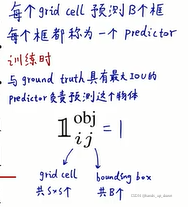 每个grid cell 预测B个框
每个框都称为一个 predictor
训练时
与 ground truth 具有最大IOU的
predictor负责预测这个物体
𝟙 obj ij = 1
grid cell
bounding box
共S×S个
共B个